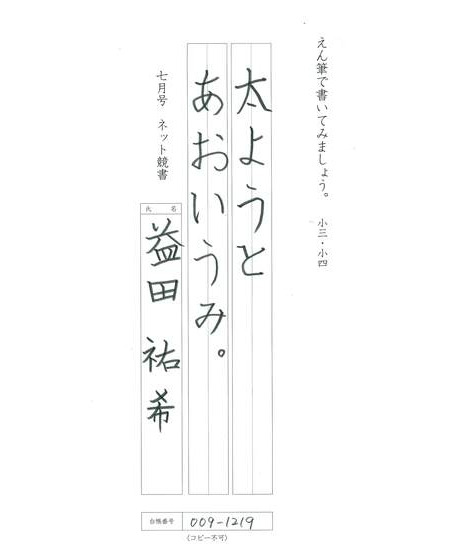 えん筆で書いてみましょう。　小三・小四
太ようと
あおいうみ。
七月号　ネット競書
氏名
益田 祐希
台帳番号 009-1219
(コピー不可)